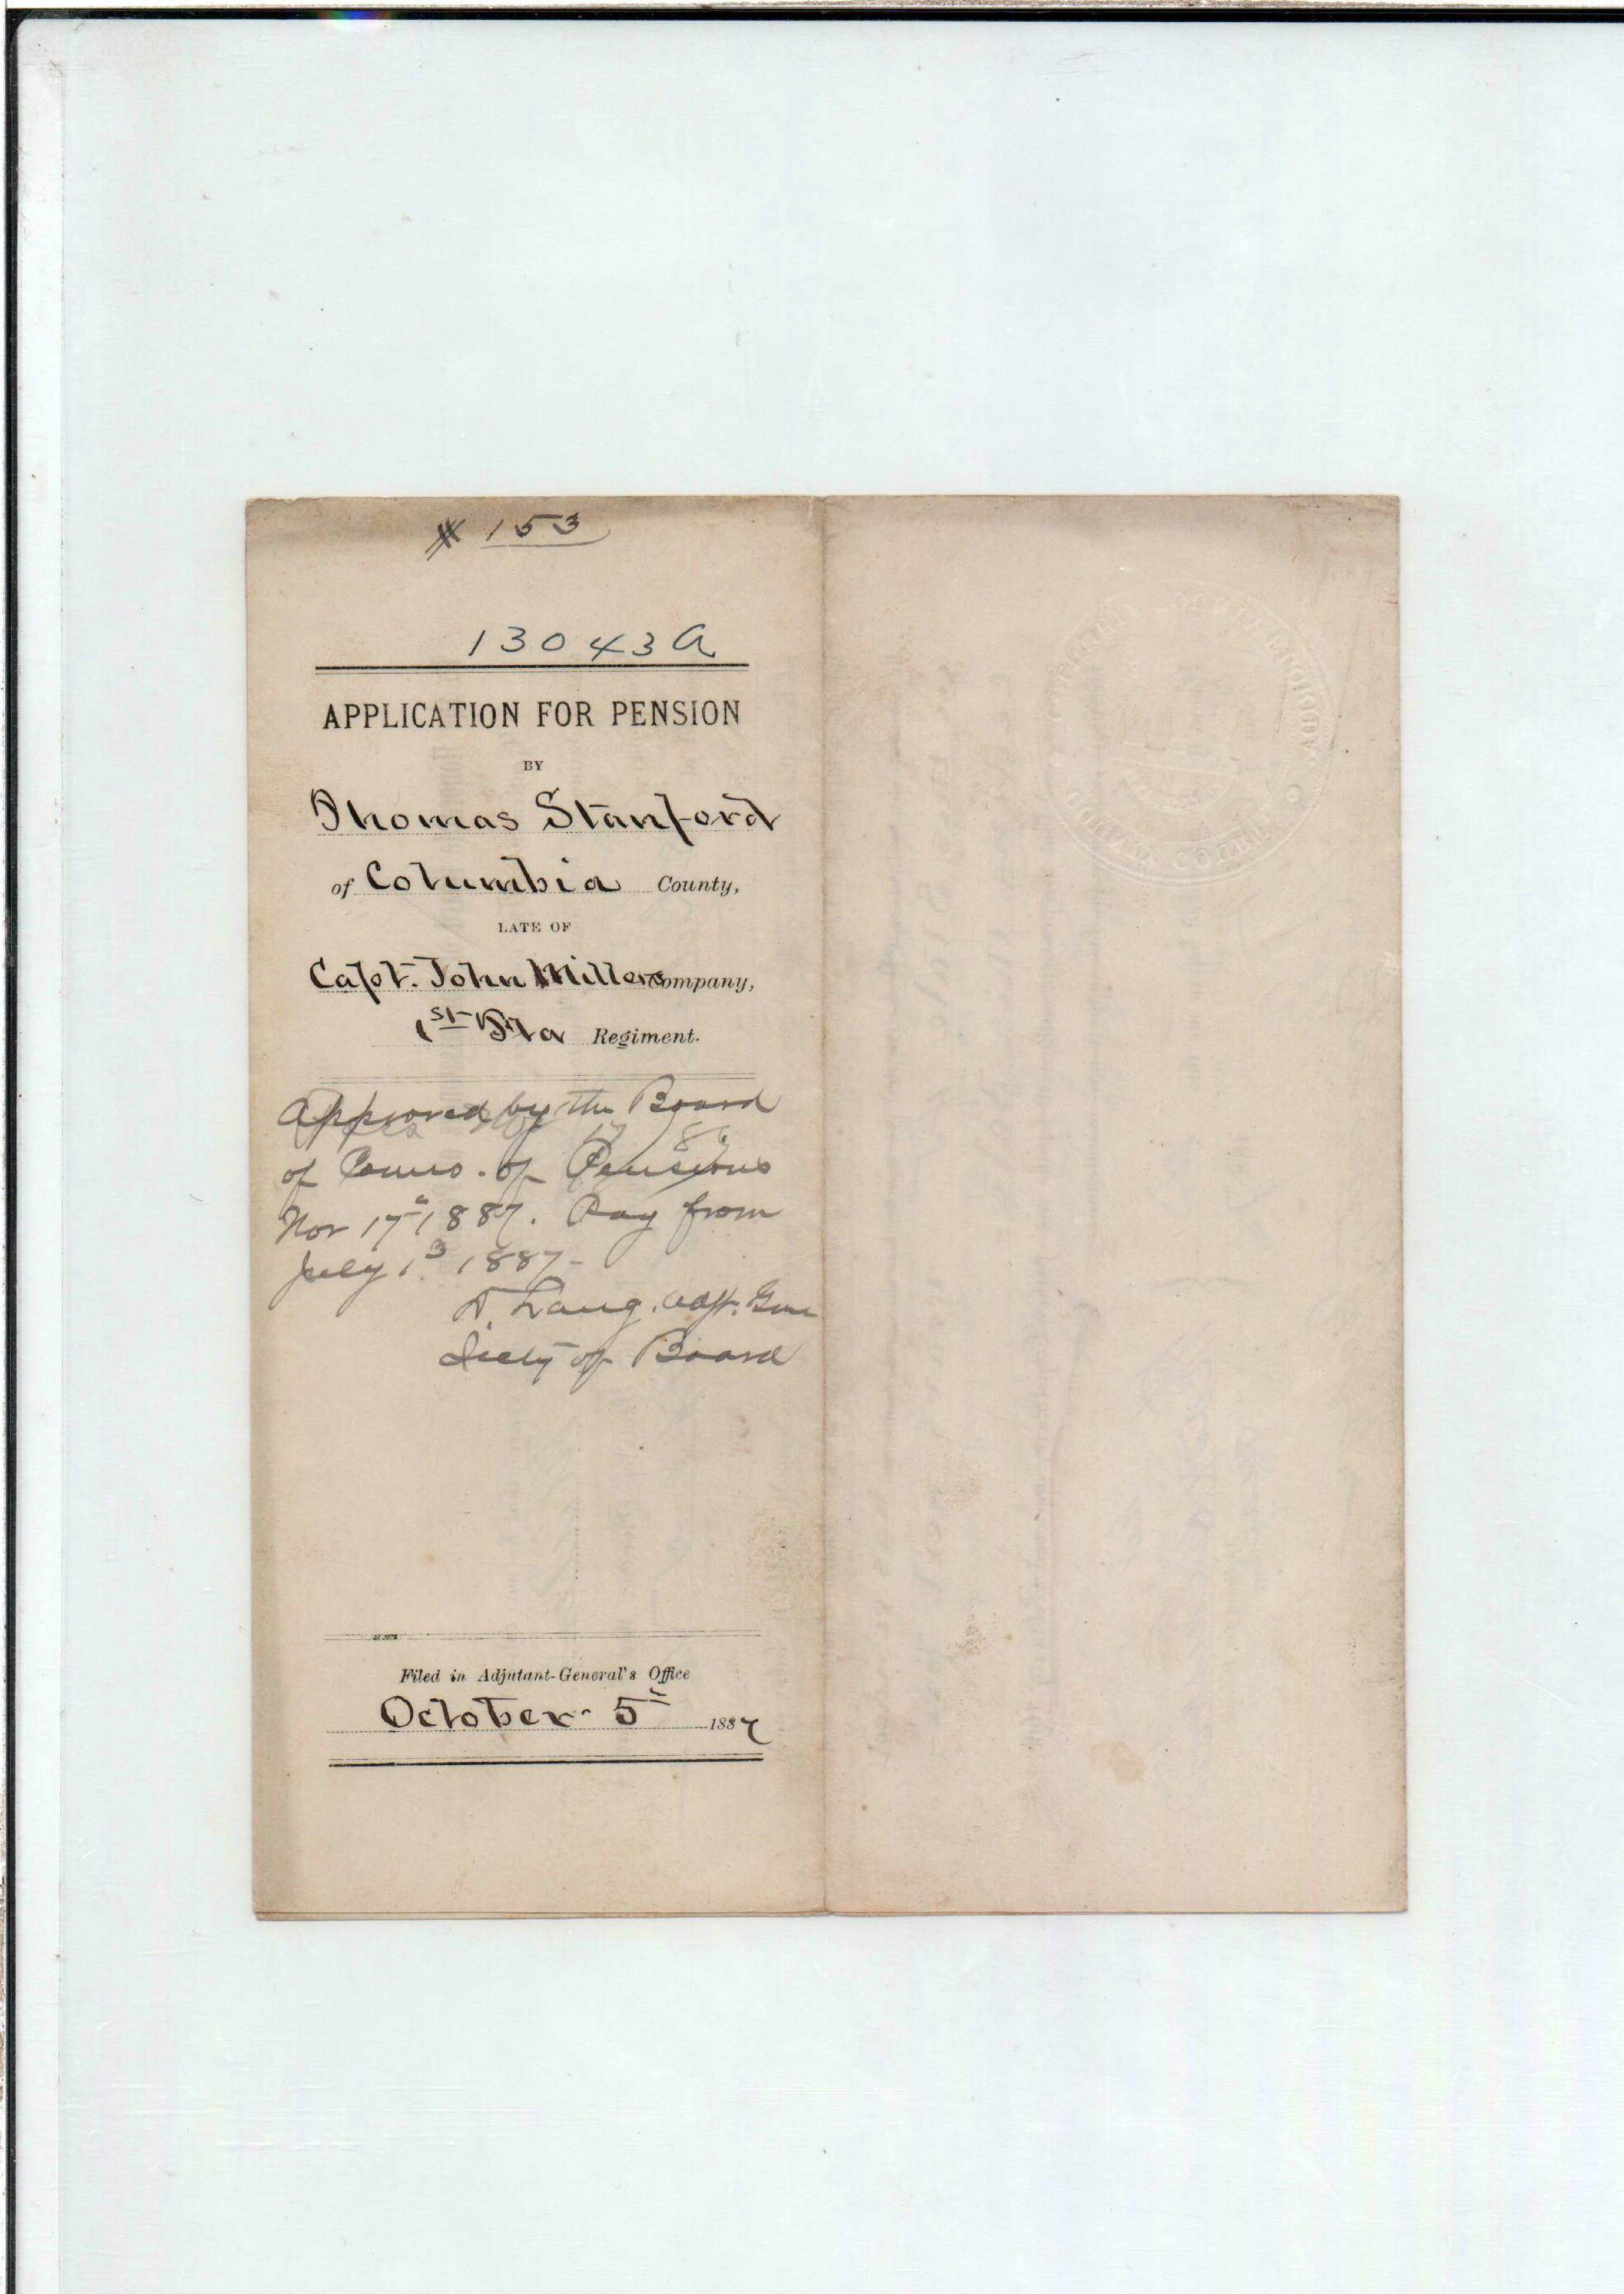 # 153
13043A
APPLICATION FOR PENSION
BY
Thomas Stanford
of Columbia County,
LATE OF
Capt. John Millers Company,
1st Fla Regiment.
Approved by the Board
of Comrs. of Pensions
Nov 17" 1887. Pay from
July 1 1887-
D. Lang. Adjt. Genl
Secty of Board
Filed in Adjutant-General's Office
October 5" 1887